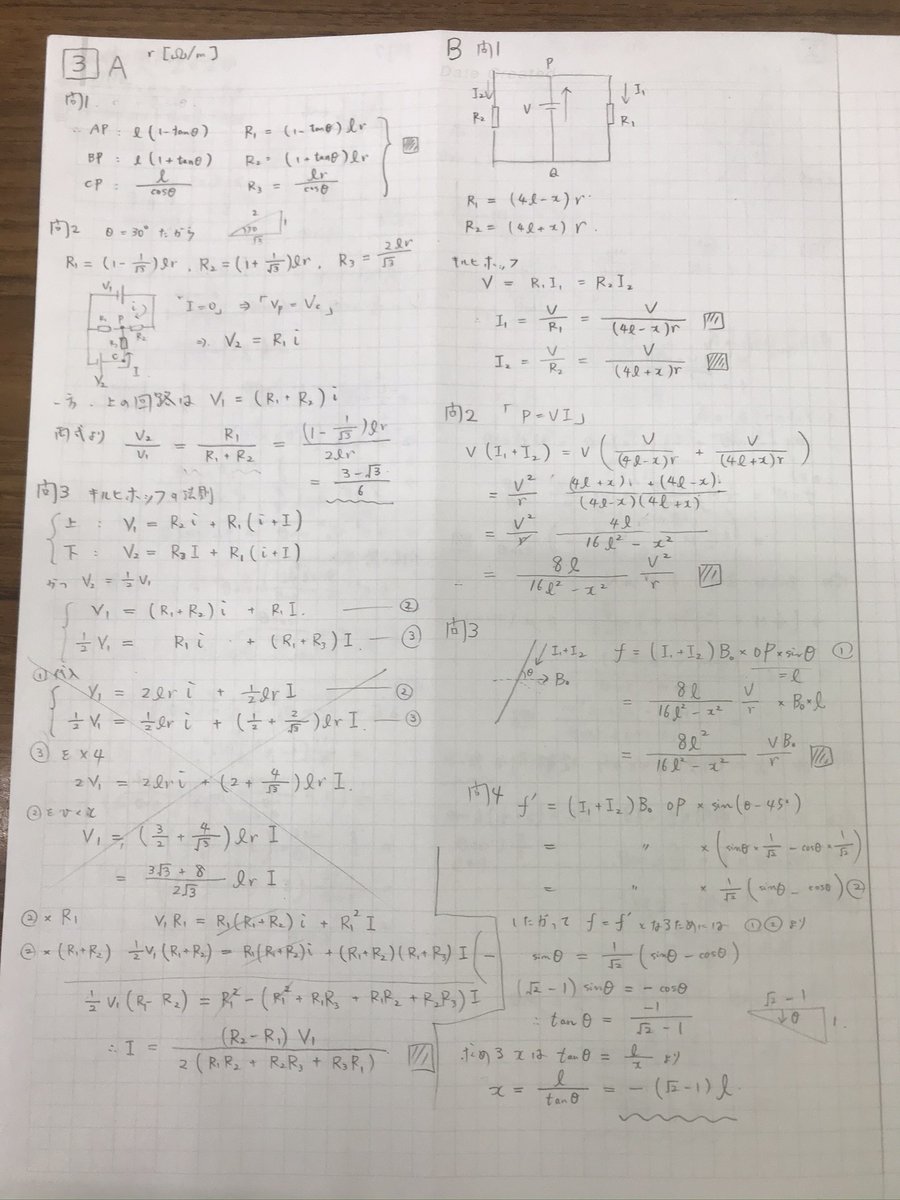 3 A r [Ω/m]
問1
AP : l(1-tanθ) R₁ = (1-tanθ)lr
BP : l(1+tanθ) R₂ = (1+tanθ)lr
CP : l/cosθ R₃ = lr/cosθ
問2 θ=30° だから 2 1 30 √3
R₁ = (1-1/√3)lr, R₂ = (1+1/√3)lr, R₃ = 2lr/√3
V₁ i P R₂ C I V₂
「I=0」 ⇒ 「Vp = Vc」
⇒ V₂ = R₁ i
一方, 上の回路は V₁ = (R₁+R₂)i
両式より V₂/V₁ = R₁/(R₁+R₂) = (1-1/√3)lr/2lr
= (3-√3)/6
問3 キルヒホッフの法則
上 : V₁ = R₂ i + R₁(i+I)
下 : V₂ = R₃ I + R₁(i+I)
かつ V₂ = 1/2 V₁
V₁ = (R₁+R₂) i + R₁ I. ②
1/2 V₁ = R₁ i + (R₁+R₃) I. ③
V₁ = 2lr i + 1/2 lr I ②
1/2 V₁ = 1/2 lr i + (1/2 + 2/√3) lr I. ③
③を×4
2V₁ = 2lr i + (2 + 4/√3) lr I.
②をひくと
V₁ = (3/2 + 4/√3) lr I
= (3√3+8)/2√3 lr I
②×R₁ V₁R₁ = R₁(R₁+R₂)i + R₁² I
②×(R₁+R₂) 1/2 V₁(R₁+R₂) = R₁(R₁+R₂)i + (R₁+R₂)(R₁+R₃) I (-
1/2 V₁(R₁-R₂) = R₁² - (R₁² + R₁R₃ + R₁R₂ + R₂R₃) I
∴ I = (R₂-R₁) V₁ / 2(R₁R₂ + R₂R₃ + R₃R₁)
B 問1
P
I₂ I₁
R₂ V R₁
Q
R₁ = (4l-x) r
R₂ = (4l+x) r.
キルヒホッフ
V = R₁I₁ = R₂I₂
I₁ = V/R₁ = V/(4l-x)r
I₂ = V/R₂ = V/(4l+x)r
問2 「P=VI」
V(I₁+I₂) = V(V/(4l-x)r + V/(4l+x)r)
= V²/r (4l+x) + (4l-x)/(4l-x)(4l+x)
= V²/r 4l/16l²-x²
= 8l/16l²-x² V²/r
問3
I₁+I₂ θ B₀
f = (I₁+I₂)B₀ × OP × sinθ ①
= l
= 8l/16l²-x² V/r × B₀ × l
= 8l²/16l²-x² VB₀/r
問4 f' = (I₁+I₂)B₀ OP × sin(θ-45°)
= 〃 × (sinθ × 1/√2 - cosθ × 1/√2)
= 〃 × 1/√2 (sinθ - cosθ) ②
したがって f=f' となるためには ①②より
sinθ = 1/√2 (sinθ - cosθ)
(√2-1) sinθ = -cosθ
∴ tanθ = -1/(√2-1)
√2-1 θ 1
もとめる x は tanθ = l/x より
x = l/tanθ = -(√2-1) l